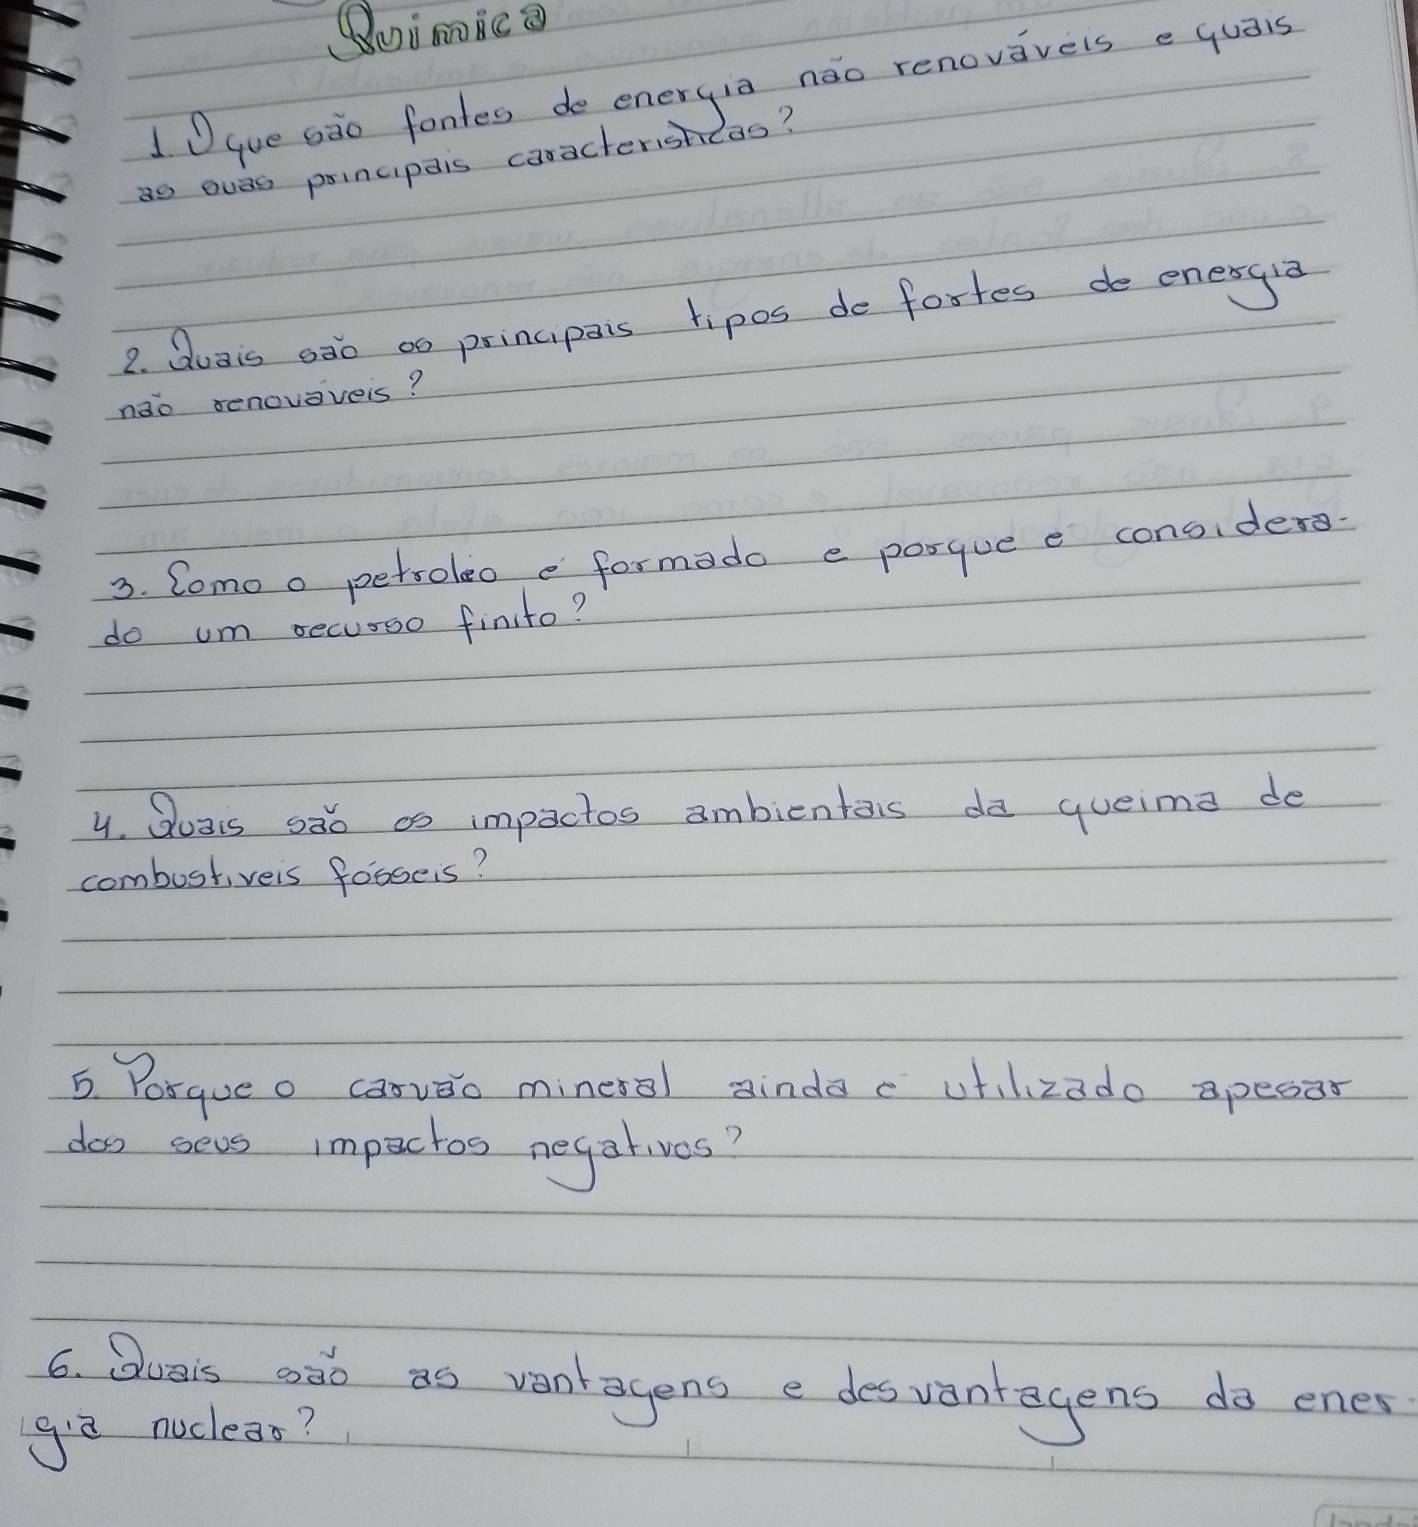 Química
1. O que são fontes de energia não renováveis e quais
as suas principais caracteristicas?
2. Quais são os principais tipos de fortes de energia
não renováveis?
3. Como o petroleo é formado e porque é considera-
do um recurso finito?
4. Quais são os impactos ambientais da queima de
combustiveis fósseis?
5. Porque o carvão mineral ainda é utilizado apesar
dos seus impactos negativos?
6. Quais são as vantagens e desvantagens da ener-
gia nuclear?